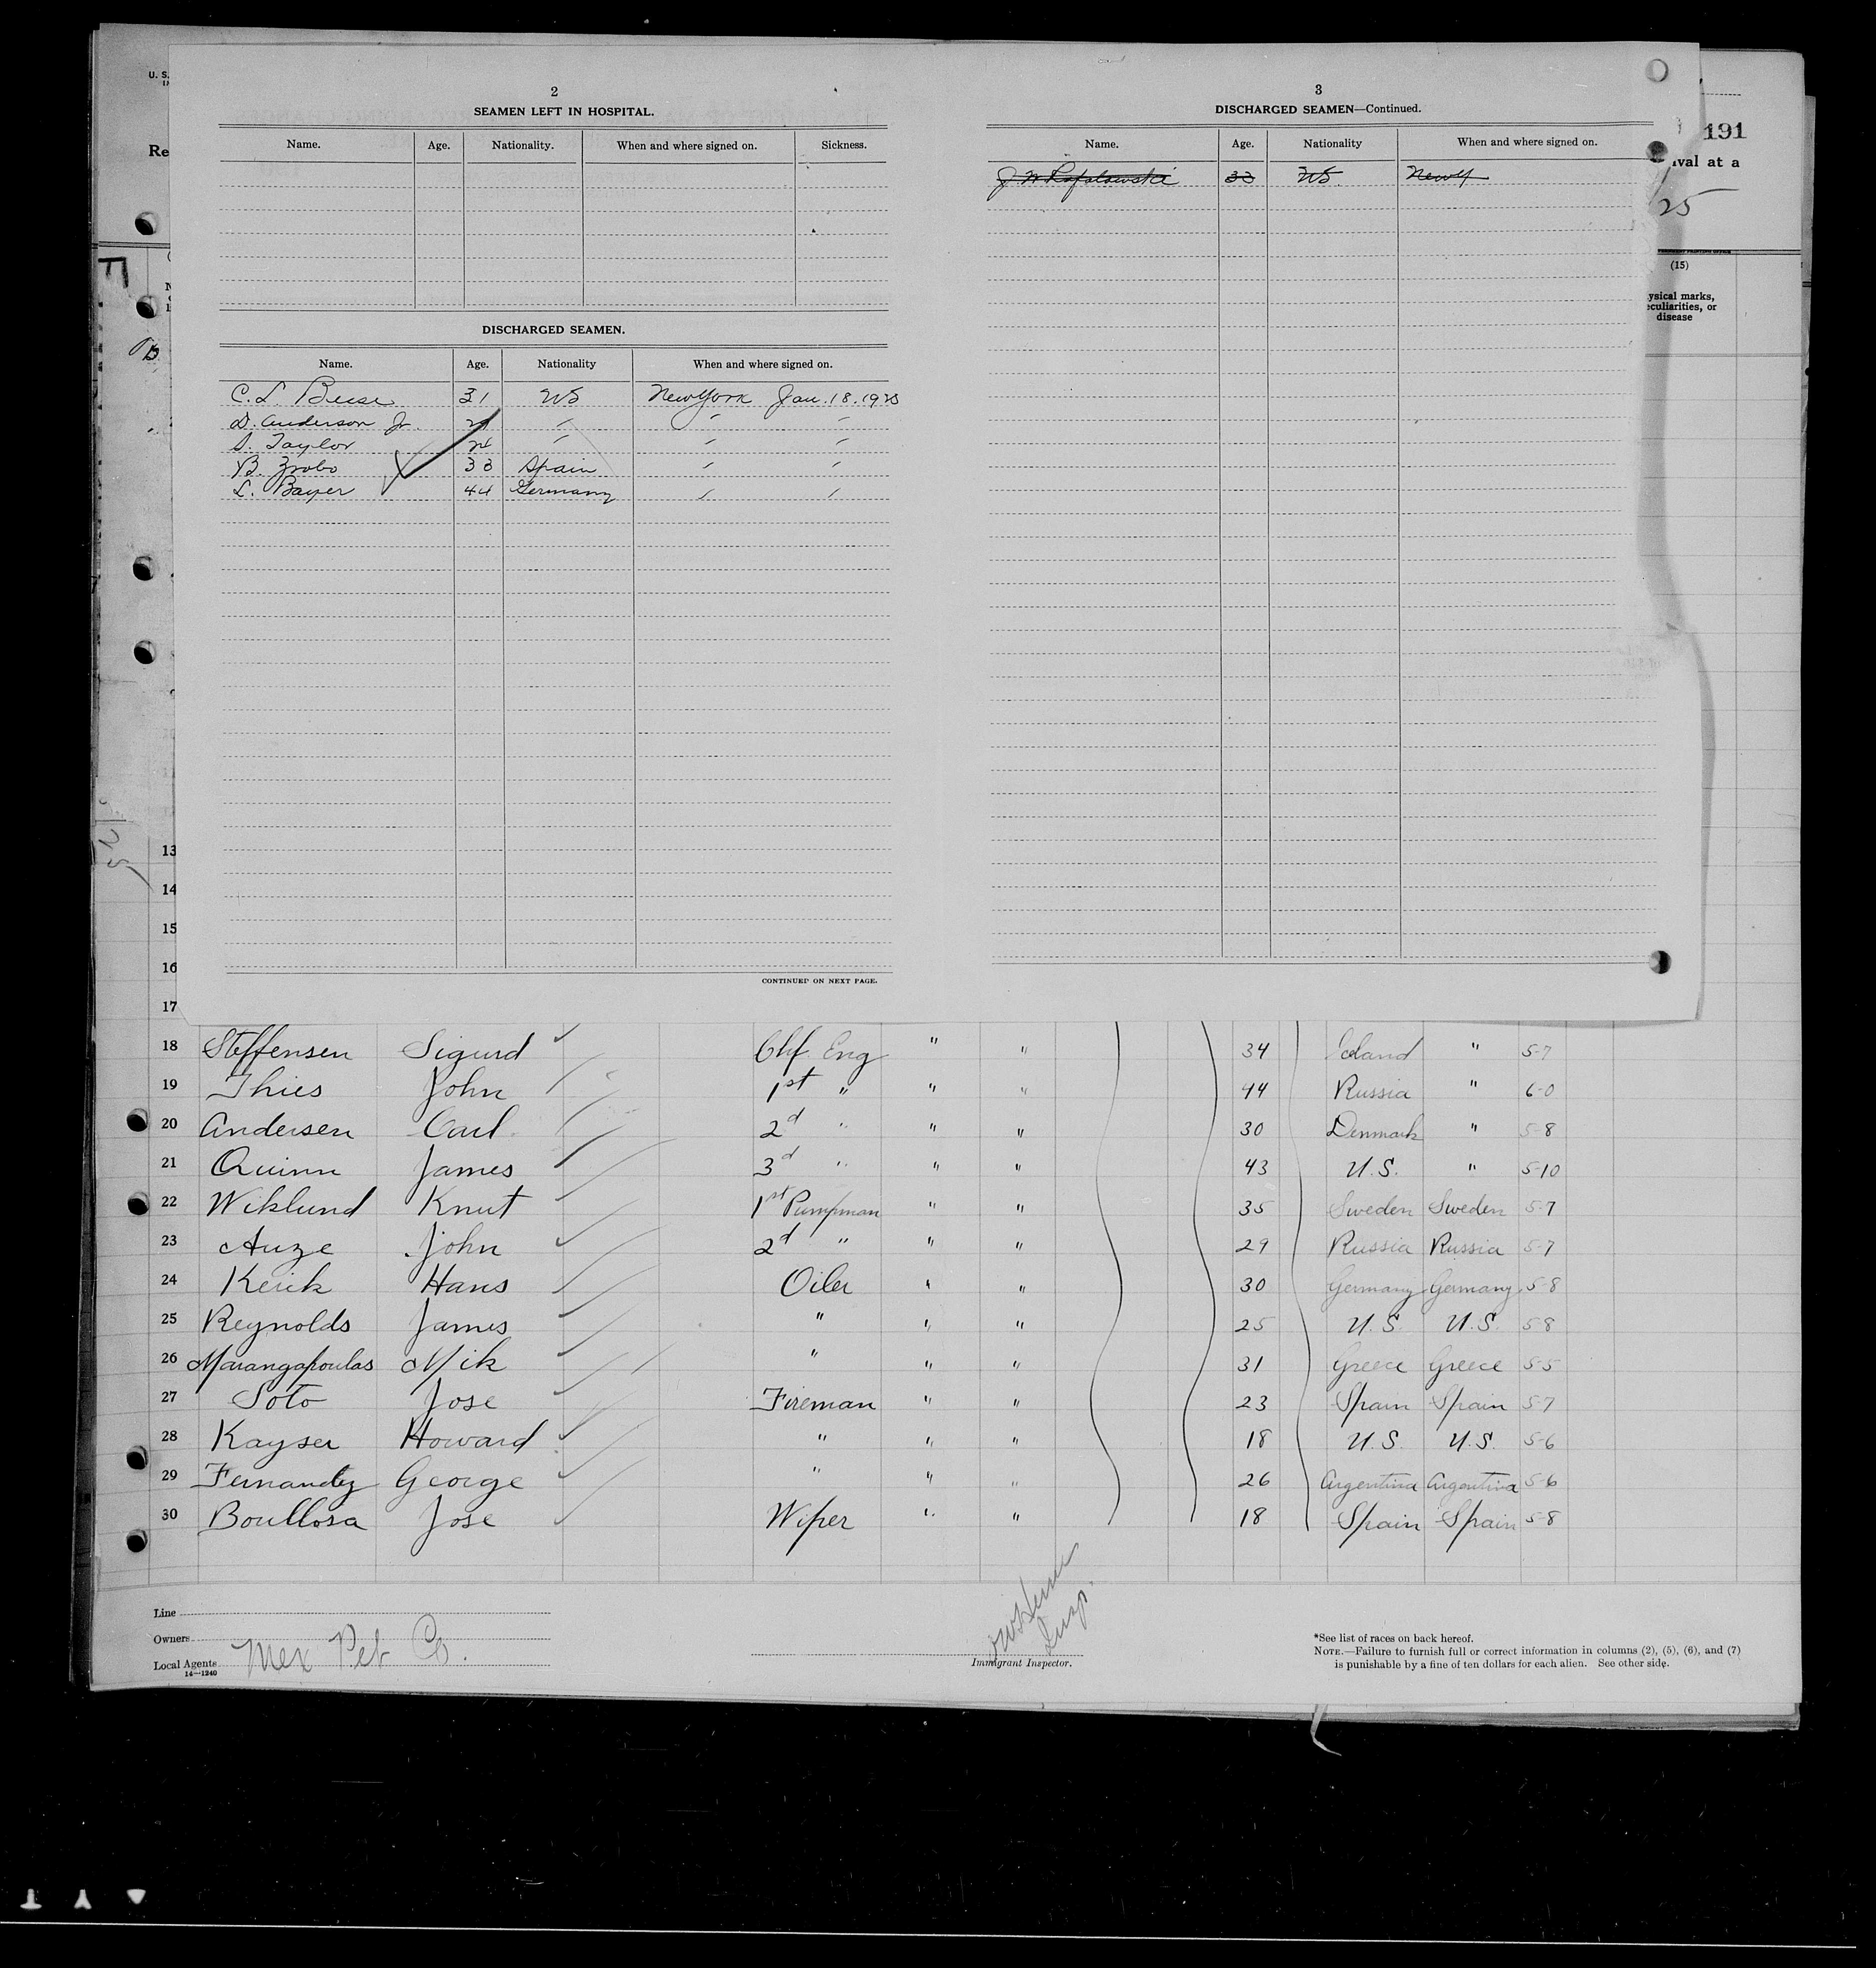 U. S.
Re
191
ival at a
25
(15)
ysical marks,
eculiarities, or
disease
2
SEAMEN LEFT IN HOSPITAL.
Name. Age. Nationality. When and where signed on. Sickness.
DISCHARGED SEAMEN.
Name. Age. Nationality When and where signed on.
C. L. Beese 31 US New York Jan. 18. 1925
D. Anderson Jr. " " "
S. Taylor " " "
B. 33 Spain " "
L. Bayer 44 Germany " "
CONTINUED ON NEXT PAGE.
3
DISCHARGED SEAMEN—Continued.
Name. Age. Nationality When and where signed on.
33 US. New Y
13
14
15
16
17
18 Steffensen Sigurd Chf. Eng " " 34 Iceland " 5-7
19 Thies John 1st " " " 44 Russia " 6-0
20 Andersen Carl 2d " " " 30 Denmark " 5-8
21 Quinn James 3d " " " 43 U.S. " 5-10
22 Wiklund Knut 1st Pumpman " " 35 Sweden Sweden 5-7
23 Auze John 2d " " " 29 Russia Russia 5-7
24 Kerik Hans Oiler " " 30 Germany Germany 5-8
25 Reynolds James " " " 25 U.S. U.S. 5-8
26 Marangapoulas Mik " " " 31 Greece Greece 5-5
27 Soto Jose Fireman " " 23 Spain Spain 5-7
28 Kayser Howard " " " 18 U.S. U.S. 5-6
29 Fernandez George " " " 26 Argentina Argentina 5-6
30 Boullosa Jose Wiper " " 18 Spain Spain 5-8
Line
Owners
Local Agents Mex Pet Co.
14—1240
Insp.
Immigrant Inspector.
*See list of races on back hereof.
NOTE.—Failure to furnish full or correct information in columns (2), (5), (6), and (7)
is punishable by a fine of ten dollars for each alien. See other side.